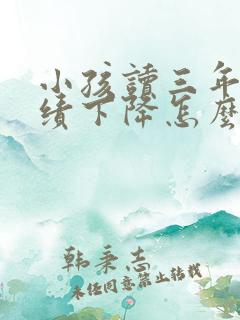 小孩讀三年
績下降怎麼
韩秉志
未经同意禁止转载